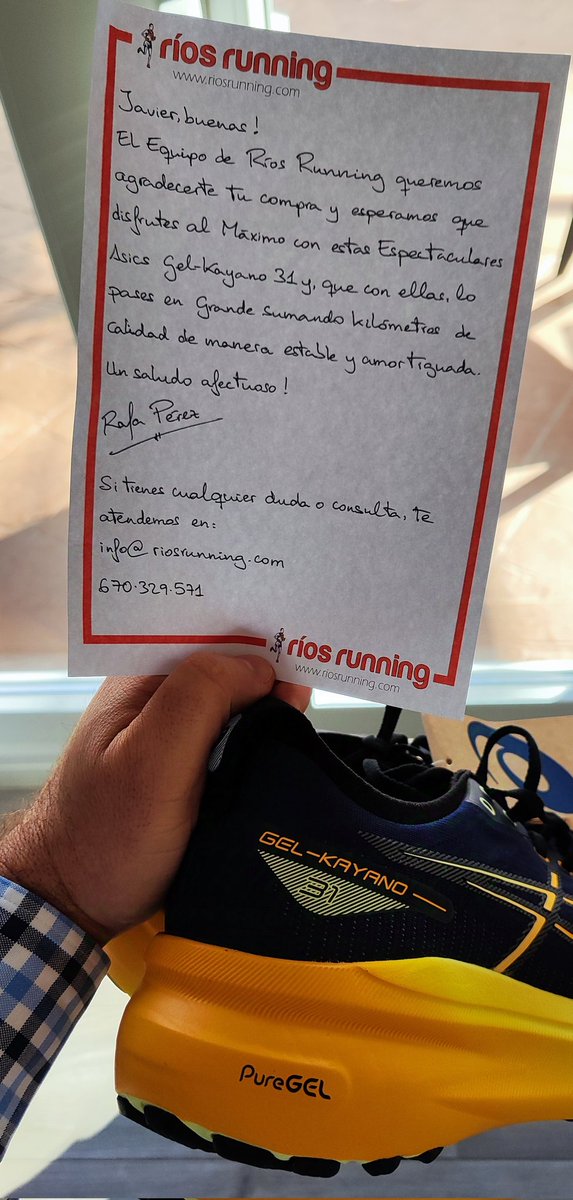 ríos running
www.riosrunning.com
Javier, buenas!
El Equipo de Ríos Running queremos
agradecerte tu compra y esperamos que
disfrutes al Máximo con estas Espectaculares
Asics Gel-Kayano 31 y, que con ellas, lo
pases en Grande sumando kilómetros de
calidad de manera estable y amortiguada.
Un saludo afectuoso!
Rafa Pérez
Si tienes cualquier duda o consulta, te
atendemos en:
info@riosrunning.com
670.329.571
ríos running
www.riosrunning.com
GEL-KAYANO
31
PureGEL